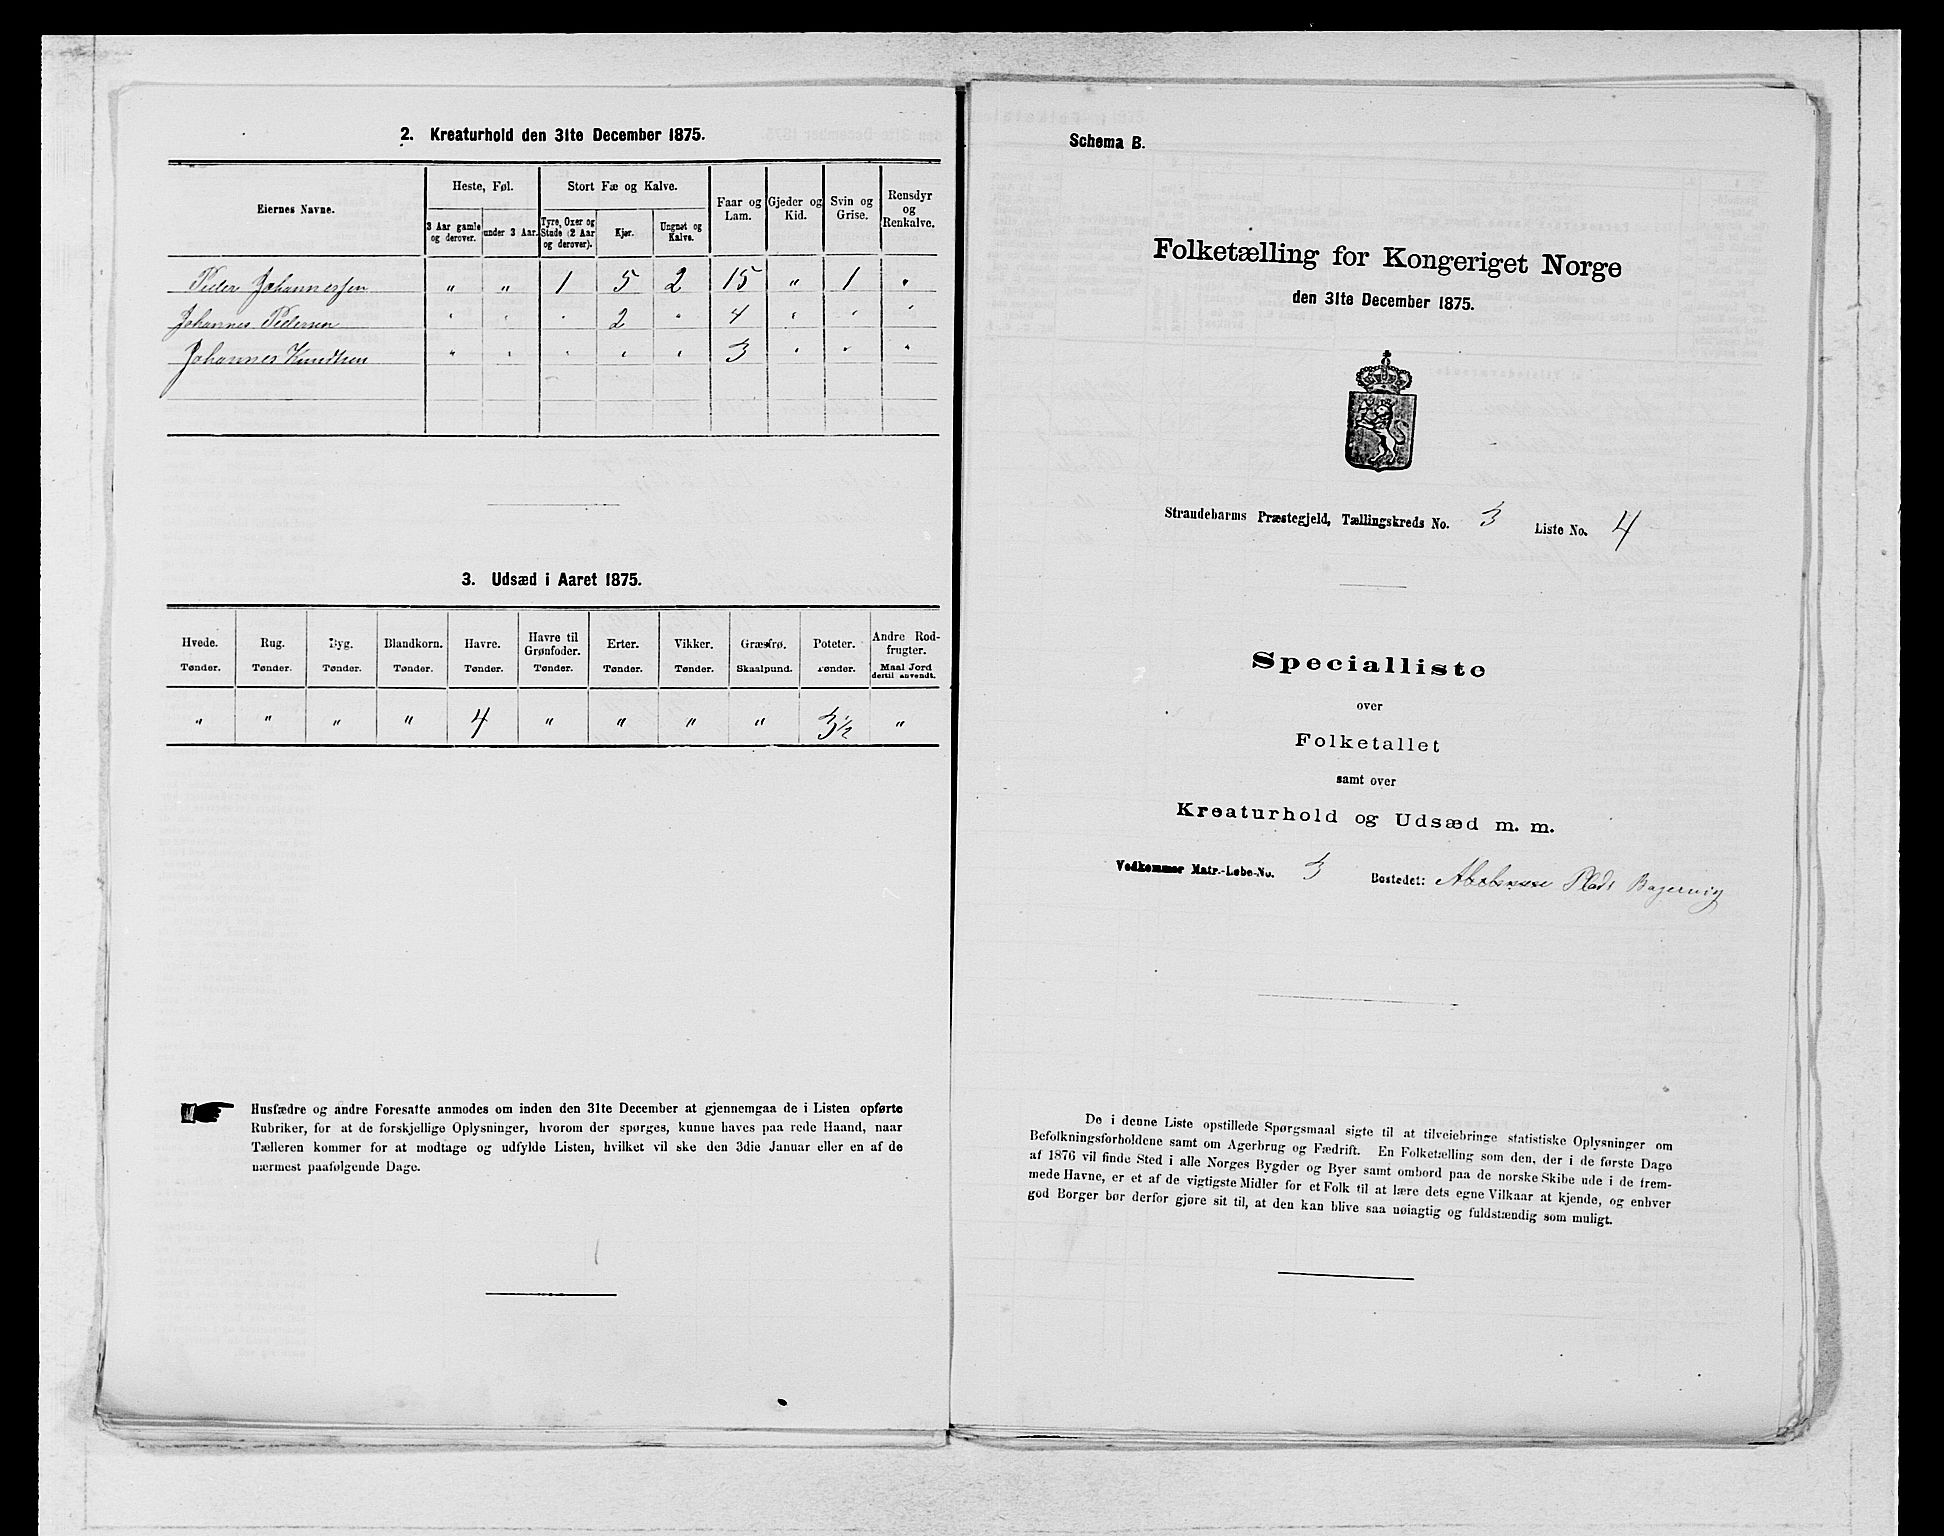 2. Kreaturhold den 31te December 1875.
Eiernes Navne.
Heste, Føl.
Stort Fæ og Kalve.
Faar og Lam.
Gjeder og Kid.
Svin og Grise.
Rensdyr og Renkalve.
3 Aar gamle og derover.
under 3 Aar.
Tyre, Oxer og Stude (2 Aar og derover).
Kjør.
Ungnøt og Kalve.
Peder Johannessen " " 1 5 2 15 " 1 "
Johannes Pedersen " " " 2 " 4 " " "
Johannes Knudsen " " " " " 3 " " "
3. Udsæd i Aaret 1875.
Hvede. Rug. Byg. Blandkorn. Havre. Havre til Grønfoder. Erter. Vikker. Græsfrø. Poteter. Andre Rodfrugter.
Tønder. Tønder. Tønder. Tønder. Tønder. Tønder. Tønder. Tønder. Skaalpund. Tønder. Maal Jord dertil anvendt.
" " " " 4 " " " " 3½ "
Husfædre og andre Foresatte anmodes om inden den 31te December at gjennemgaa de i Listen opførte
Rubriker, for at de forskjellige Oplysninger, hvorom der spørges, kunne haves paa rede Haand, naar
Tælleren kommer for at modtage og udfylde Listen, hvilket vil ske den 3die Januar eller en af de
nærmest paafølgende Dage.
Schema B.
Folketælling for Kongeriget Norge
den 31te December 1875.
Strandebarms Præstegjeld, Tællingskreds No. 3 Liste No. 4
Specialliste
over
Folketallet
samt over
Kreaturhold og Udsæd m. m.
Vedkommer Matr.-Løbe-No. 3 Bostedet: Plads
De i denne Liste opstillede Spørgsmaal sigte til at tilveiebringe statistiske Oplysninger om
Befolkningsforholdene samt om Agerbrug og Fædrift. En Folketælling som den, der i de første Dage
af 1876 vil finde Sted i alle Norges Bygder og Byer samt ombord paa de norske Skibe ude i de frem-
mede Havne, er et af de vigtigste Midler for et Folk til at lære dets egne Vilkaar at kjende, og enhver
god Borger bør derfor gjøre sit til, at den kan blive saa nøiagtig og fuldstændig som muligt.